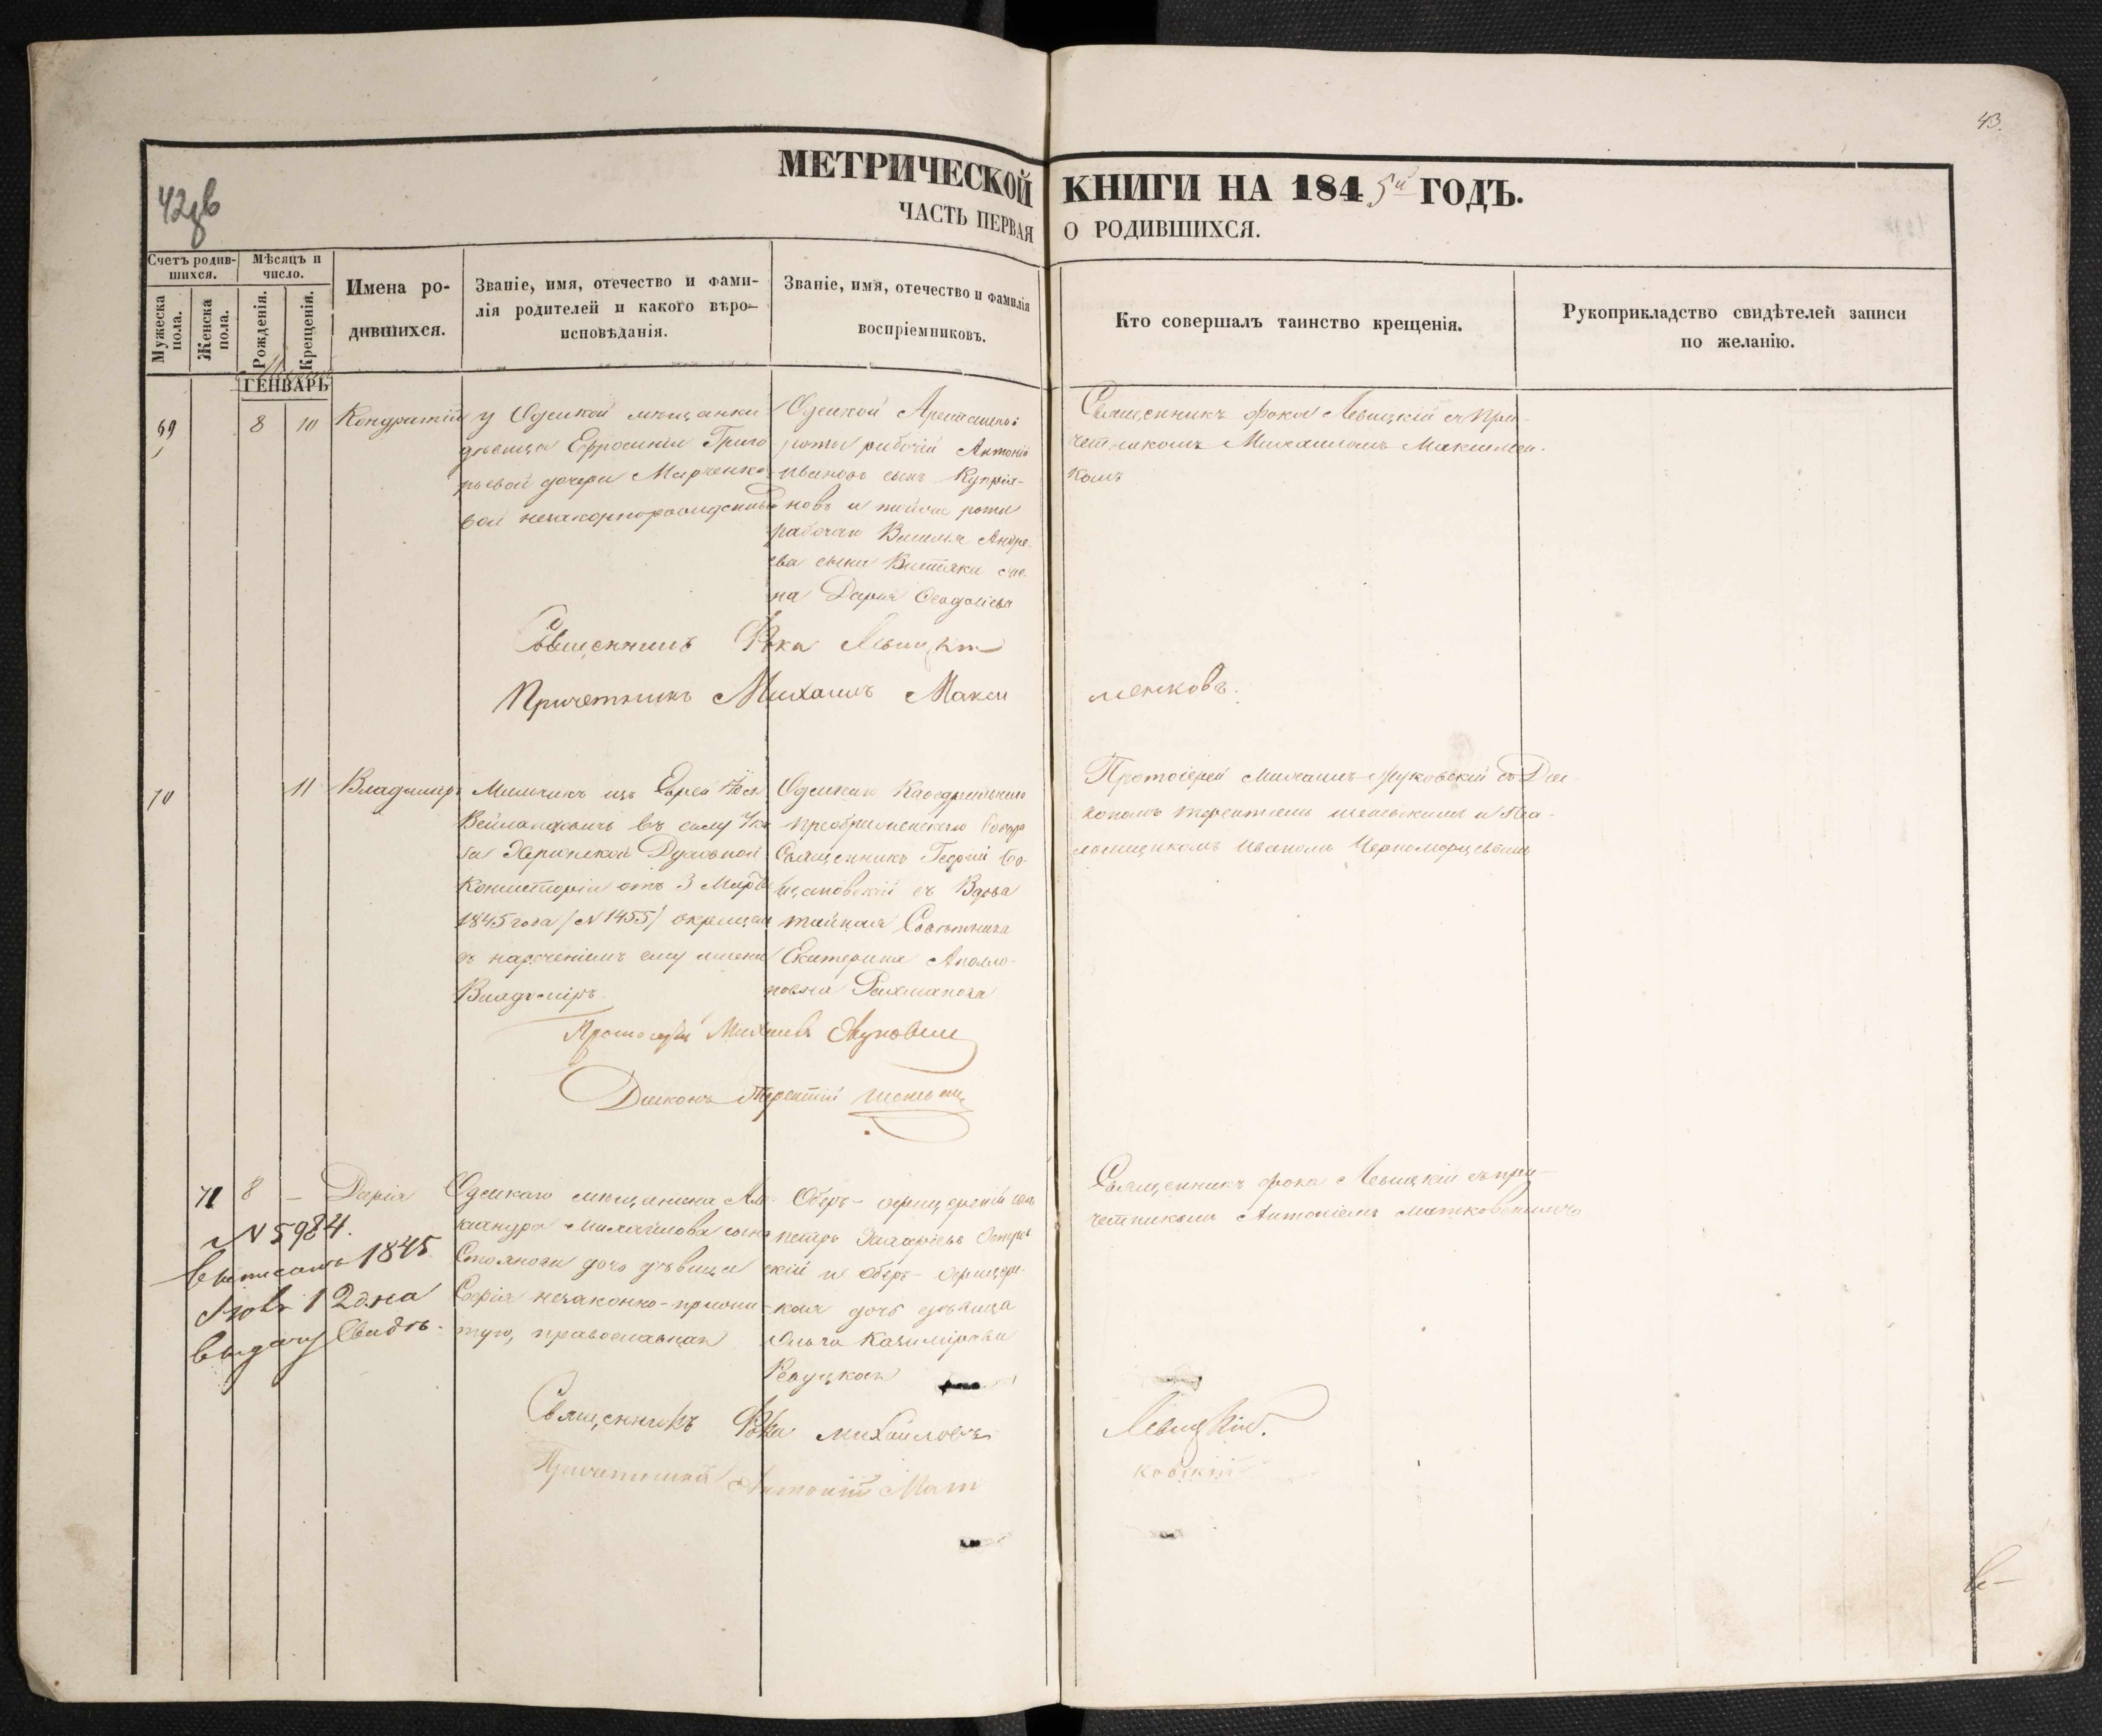 43.
42зв
МЕТРИЧЕСКОЙ КНИГИ НА 1845й ГОДЪ.
ЧАСТЬ ПЕРВАЯ О РОДИВШИХСЯ.
Счетъ родив-
шихся.
Мужеска
пола.
Женска
пола.
Мѣсяцъ и
число.
Рожденія.
Крещенія.
Имена ро-
дившихся.
Званіе, имя, отечество и фами-
лія родителей и какого вѣро-
исповѣданія.
Званіе, имя, отечество и фамилія
воспріемниковъ.
Кто совершалъ таинство крещенія.
Рукоприкладство свидѣтелей записи
по желанію.
ГЕНВАРЬ
69 8 10 Кондратій
у Одеской мѣщанки
дѣвицы Ефросиніи Григо
рьевой дочери Марченко
вой незаконнорожденный
Одеской Арестанской
роты рабочій Антоній
Ивановъ сынъ Купрія-
новъ и той же роты
рабочаго Василія Андре
ева сына жена
Дарія
Священникъ Фока Левицкій съ при-
четникомъ Михаиломъ Максимен-
комъ
Священникъ Фока Левицкій
Причетникъ Михаилъ Макси менковъ.
70 11 Владимиръ
изъ Евреевъ
въ силу Ука
за Херсонской Духовной
Консисторіи отъ 3 Марта
1845 года (N 1455) окрещенъ
съ нареченіемъ ему имени
Владиміръ.
Одескаго Кафедральнаго
Преображенскаго Собора
Священникъ Георгій
съ Вдова
тайная Совѣтница
Екатерина Аполло-
новна
Протоіерей Михаилъ Жуковскій съ Діа-
кономъ Терентіемъ и По-
номаремъ Иваномъ Черноморцевымъ
Протоіерей Михаилъ Жуковскій
Діаконъ Терентій
71 8 – Дарія
Одескаго мѣщанина Але
ксандра Михайлова сына
Стоянова дочь дѣвица
Софія незаконно-прижи-
тую, православная
Оберъ-офицерскій сынъ
Петръ Захаріевъ
скій и Оберъ-офицер-
ская дочь дѣвица
Ольга Казимірова
Священникъ Фока Левицкій съ при-
четникомъ Антоніемъ Матковскимъ
N 5984.
выписано 1845
12 дня
выдачу Свидѣ-
Священникъ Фока Михайловъ Левицкій.
Причетникъ Антоній Мат ковскій